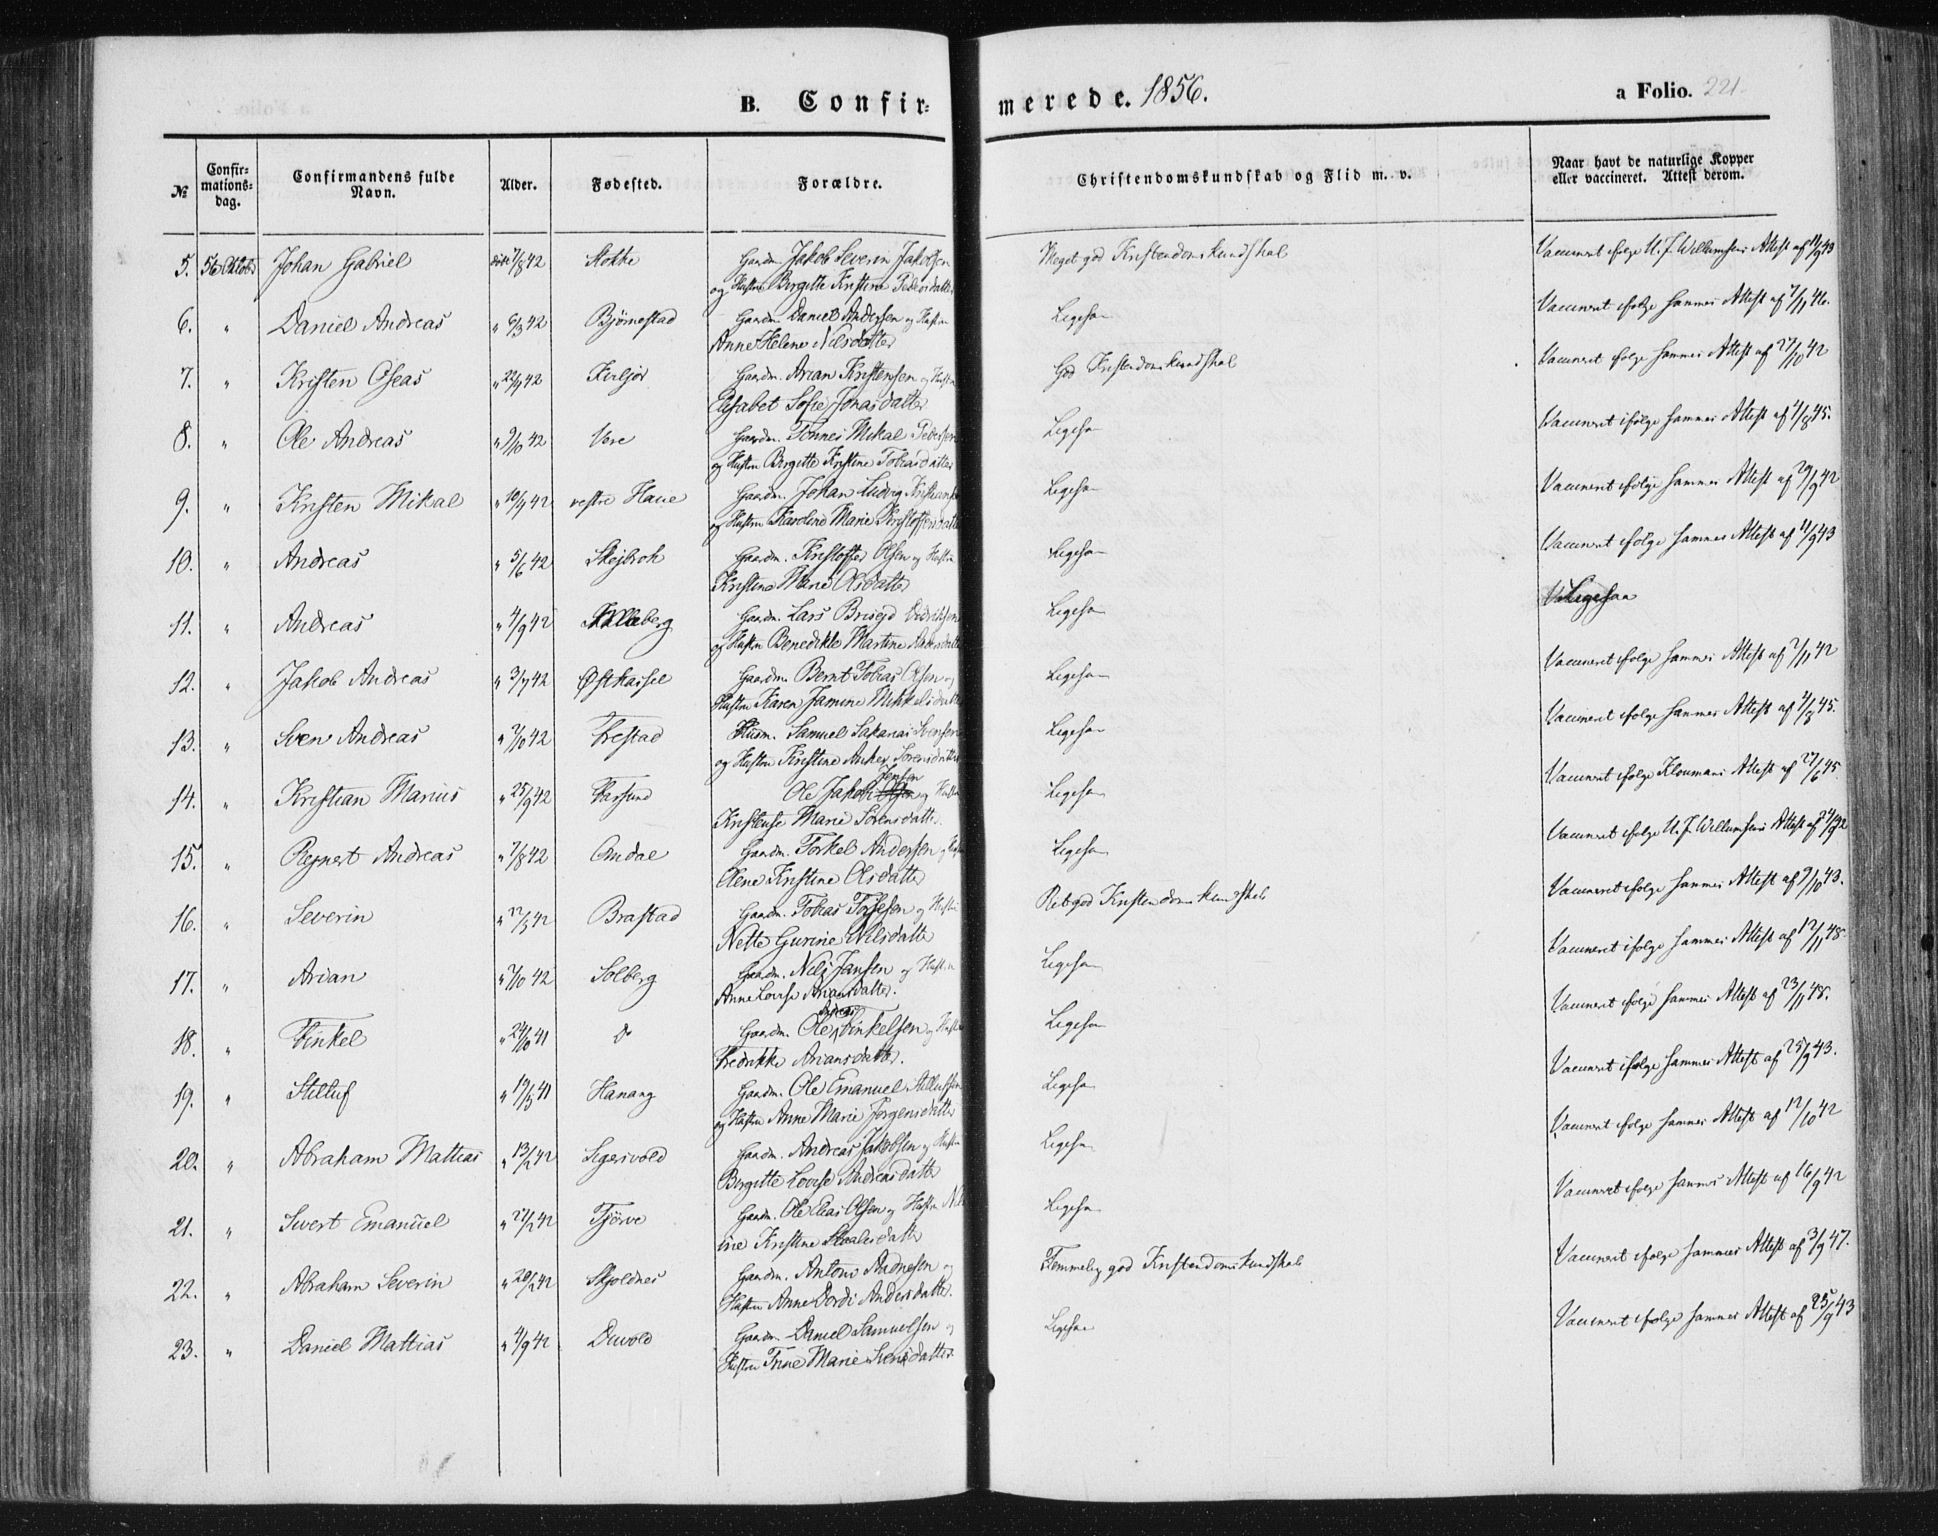 B. Confir=
merede. 1856.
a Folio. 221.
№
Confir=
mations=
dag.
Confirmandens fulde
Navn.
Alder.
Fødested.
Forældre.
Christendomskundskab og Flid m. v.
Naar havt de naturlige Kopper
eller vaccineret. Attest derom.
5. Johan Gabriel 7/8 42 Stokke Gaardm. Jakob Severin Jakobsen Meget god Kristendomskundskab Vaccineret ifølge U. F. Willumsens Attest af 11/9 43
og Hustru Birgitte Kristine Pedersdatter
6. " Daniel Andreas " 6/3 42 Bjørnestad Gaardm. Daniel Andersen og Hustru Ligesaa Vaccineret ifølge sammes Attest af 7/11 46.
Anne Helene Nilsdatter
7. " Kristen Oseas " 22/9 42 Gaardm. Arian Kristensen og Hustru God Kristendomskundskab Vaccineret ifølge sammes Attest af 27/10 42
Elisabet Sofie Jonasdatter
8. " Ole Andreas " 9/10 42 Vere Gaardm. Tønnes Mikal Pedersen Ligesaa Vaccineret ifølge sammes Attest af 4/8 45.
og Hustru Birgitte Kristine Tobiasdatter
9. " Kristen Mikal " 10/9 42 vestre Haue Gaardm. Johan Ludvig Kristiansen Ligesaa Vaccineret ifølge sammes Attest af 29/9 42
og Hustru Karoline Marie Kristoffersdatter
10. " Andreas " 5/6 42 Skejbrok Gaardm. Kristoffer Olsen og Hustru Ligesaa Vaccineret ifølge sammes Attest af 11/9 43
Kristine Marie Olsdatter
11. " Andreas " 4/9 42 Gaardm. Lars Brisejd Didriksen Ligesaa Ligesaa
og Hustru Benedikte Martine
12. " Jakob Andreas " 3/7 42 Østhassel Gaardm. Bernt Tobias Olsen og Ligesaa Vaccineret ifølge sammes Attest af 7/11 42
Hustru Karen Jamine Mikkelsdatter
13. " Sven Andreas " 7/10 42 Frestad Husm. Samuel Sakarias Svensen Ligesaa Vaccineret ifølge sammes Attest af 4/8 45.
og Hustru Kristine Anker Sørensdatter
14. " Kristian Marius " 25/9 42 Farsund Ole Jakob Jensen og Hustru Ligesaa Vaccineret ifølge Kloumans Attest af 27/6 45.
Kristense Marie Sørensdatter.
15. " Rejnert Andreas " 7/8 42 Omdal Gaardm. Torkel Andersen og Hustru Ligesaa Vaccineret ifølge U. F. Willumsens Attest af 24/9 42
Olene Kristine Olsdatter
16. " Severin " 22/5 42 Brastad Gaardm. Tobias Tollefsen og Hustru Retgod Kristendomskundskab Vaccineret ifølge sammes Attest af 9/10 43.
Nette Gurine Nilsdatter
17. " Arian " 7/10 42 Solberg Gaardm. Nils Jansen og Hustru Ligesaa Vaccineret ifølge sammes Attest af 12/11 48.
Anne Lovise Ariansdatter.
18. " Finkel " 24/10 41 do Gaardm. Ole Finkelsen og Hustru Ligesaa Vaccineret ifølge sammes Attest af 23/11 48.
Fredrikke Ariansdatter.
19. " Stilluf " 19/5 41 Hanang Gaardm. Ole Emanuel Stillufsen Ligesaa Vaccineret ifølge sammes Attest af 25/9 43.
og Hustru Anne Marie Jørgensdatter
20. " Abraham Mattias " 13/2 42 Sigersvold Gaardm. Andreas Jakobsen og Hustru Ligesaa Vaccineret ifølge sammes Attest af 12/10 42
Birgitte Lovise Andreasdatter
21. " Sivert Emanuel " 27/2 42 Tjørve Gaardm. Ole Elias Olsen og Hustru Ligesaa Vaccineret ifølge sammes Attest af 16/9 42
ine Kristine Staalesdatter
22. " Abraham Severin " 20/2 42 Skjoldnes Gaardm. Antoni Andresen og Temmelig god Kristendomskundskab Vaccineret ifølge sammes Attest af 3/9 47.
Hustru Anne Dordi Andersdatter.
23. " Daniel Mattias " 4/9 42 Duvold Gaardm. Daniel Samuelsen og Ligesaa Vaccineret ifølge sammes Attest af 25/9 43
Hustru Trine Marie Svensdatter